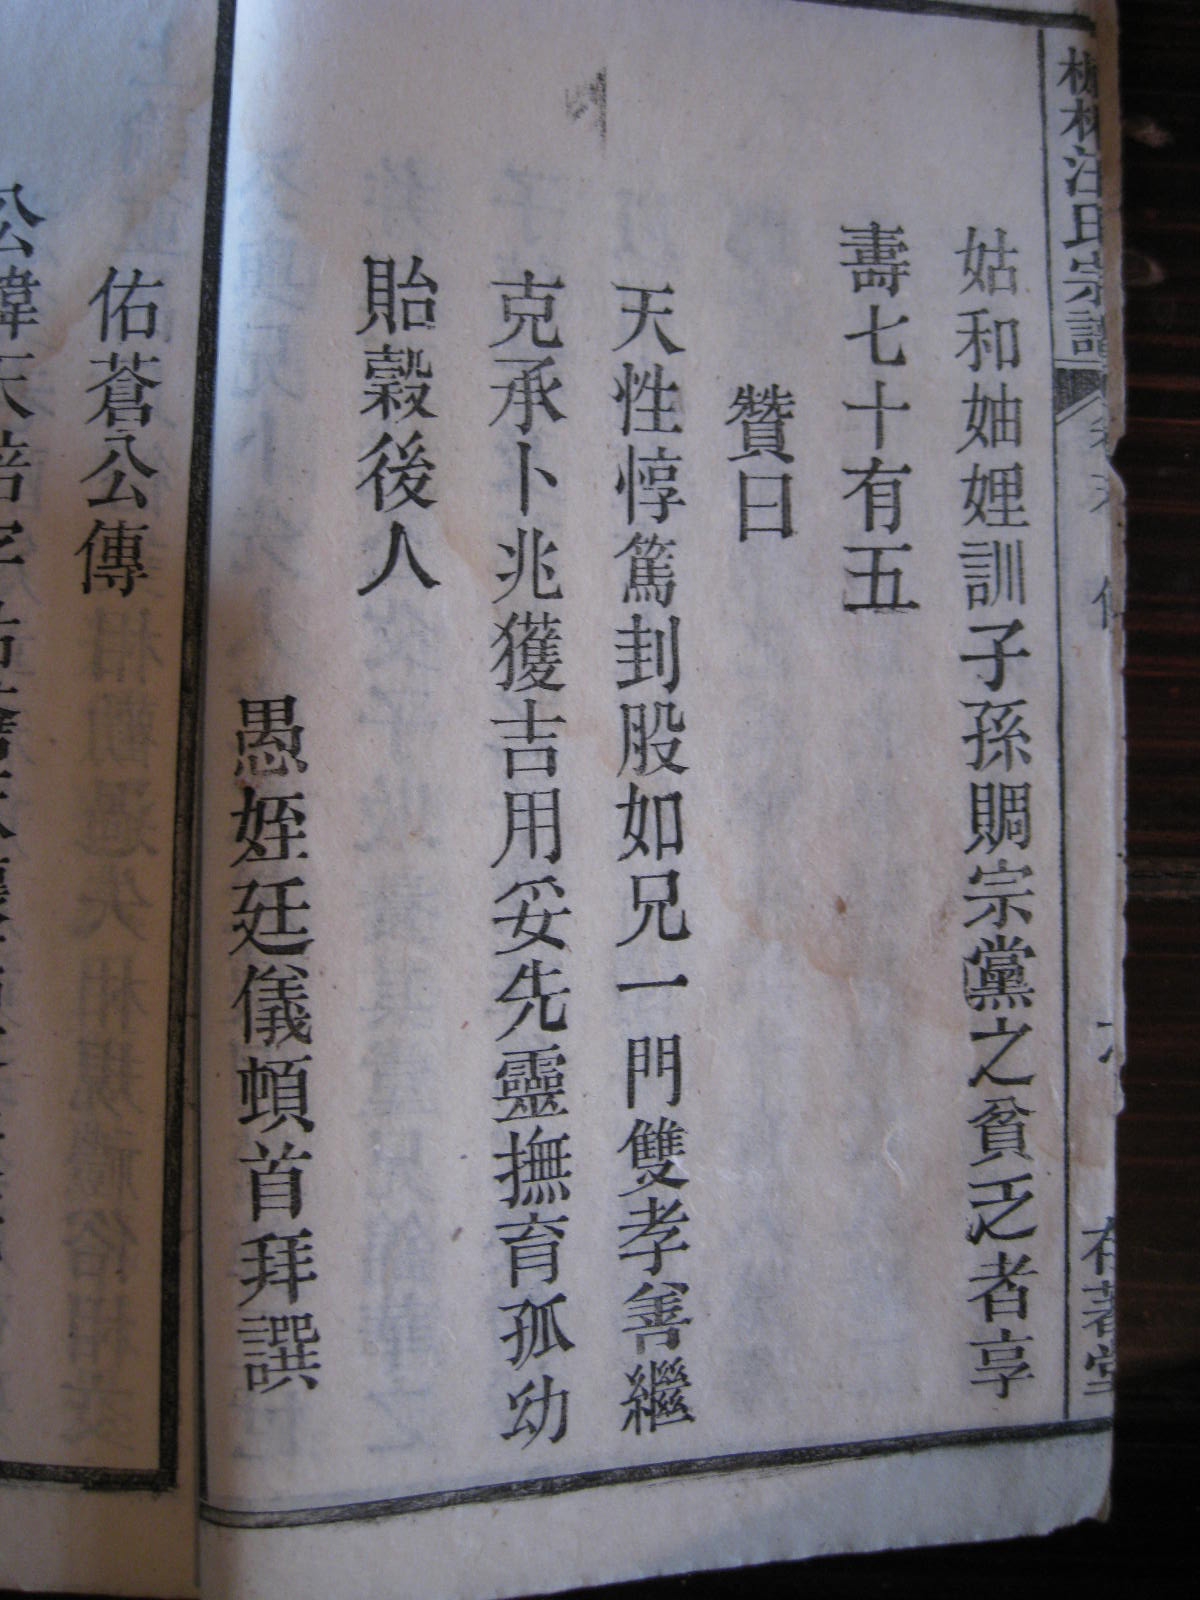 汪氏宗譜
姑和妯娌訓子孫賙宗黨之貧乏者享
壽七十有五
贊曰
天性惇篤刲股如兄一門雙孝善繼
克承卜兆獲吉用妥先靈撫育孤幼
貽穀後人
愚姪廷儀頓首拜譔
佑蒼公傳
公諱天